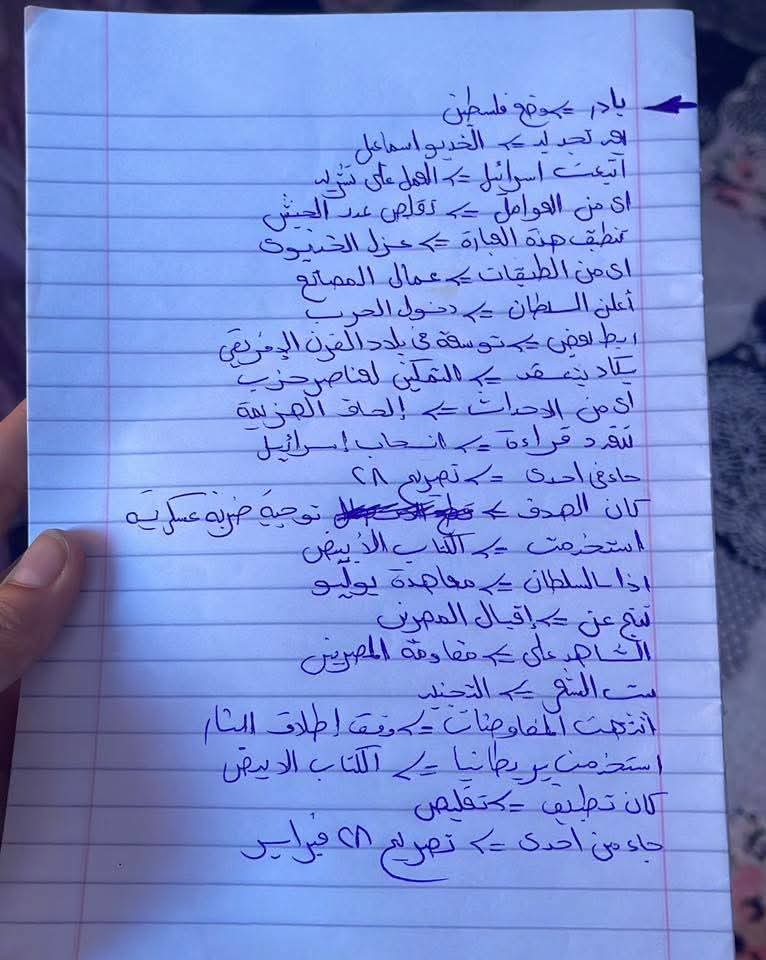 بادر => وضع فلسطين
تجديد => الخديو اسماعيل
اتبعت اسرائيل => العمل على تشريد
اى من العوامل => تقلص عدد الجيش
تنطبق هذة العبارة => عزل الخديوى
اى من الطبقات => عمال المصانع
أعلن السلطان => دخول الحرب
ربط بعض => توسعة فى بلاد القرن الإفريقي
يكاد ينعقد => التمكين لعناصر حزب
اى من الاحداث => إلحاق الهزيمة
تنفرد قراءة => انسحاب إسرائيل
جاء فى احدى => تصريح ٢٨
كان الهدف => توجية ضربة عسكرية
استخدمت => الكتاب الأبيض
اذا السلطان => معاهدة يوليو
نتج عن => إقبال المصرين
الشاهد على => مقاومة المصريين
ست الشئ => التجنيد
انتهت المفاوضات => وقف إطلاق النار
استخدمت بريطانيا => الكتاب الابيض
كان تطبيق => تقليص
جاء من احدى => تصريح ٢٨ فبراير